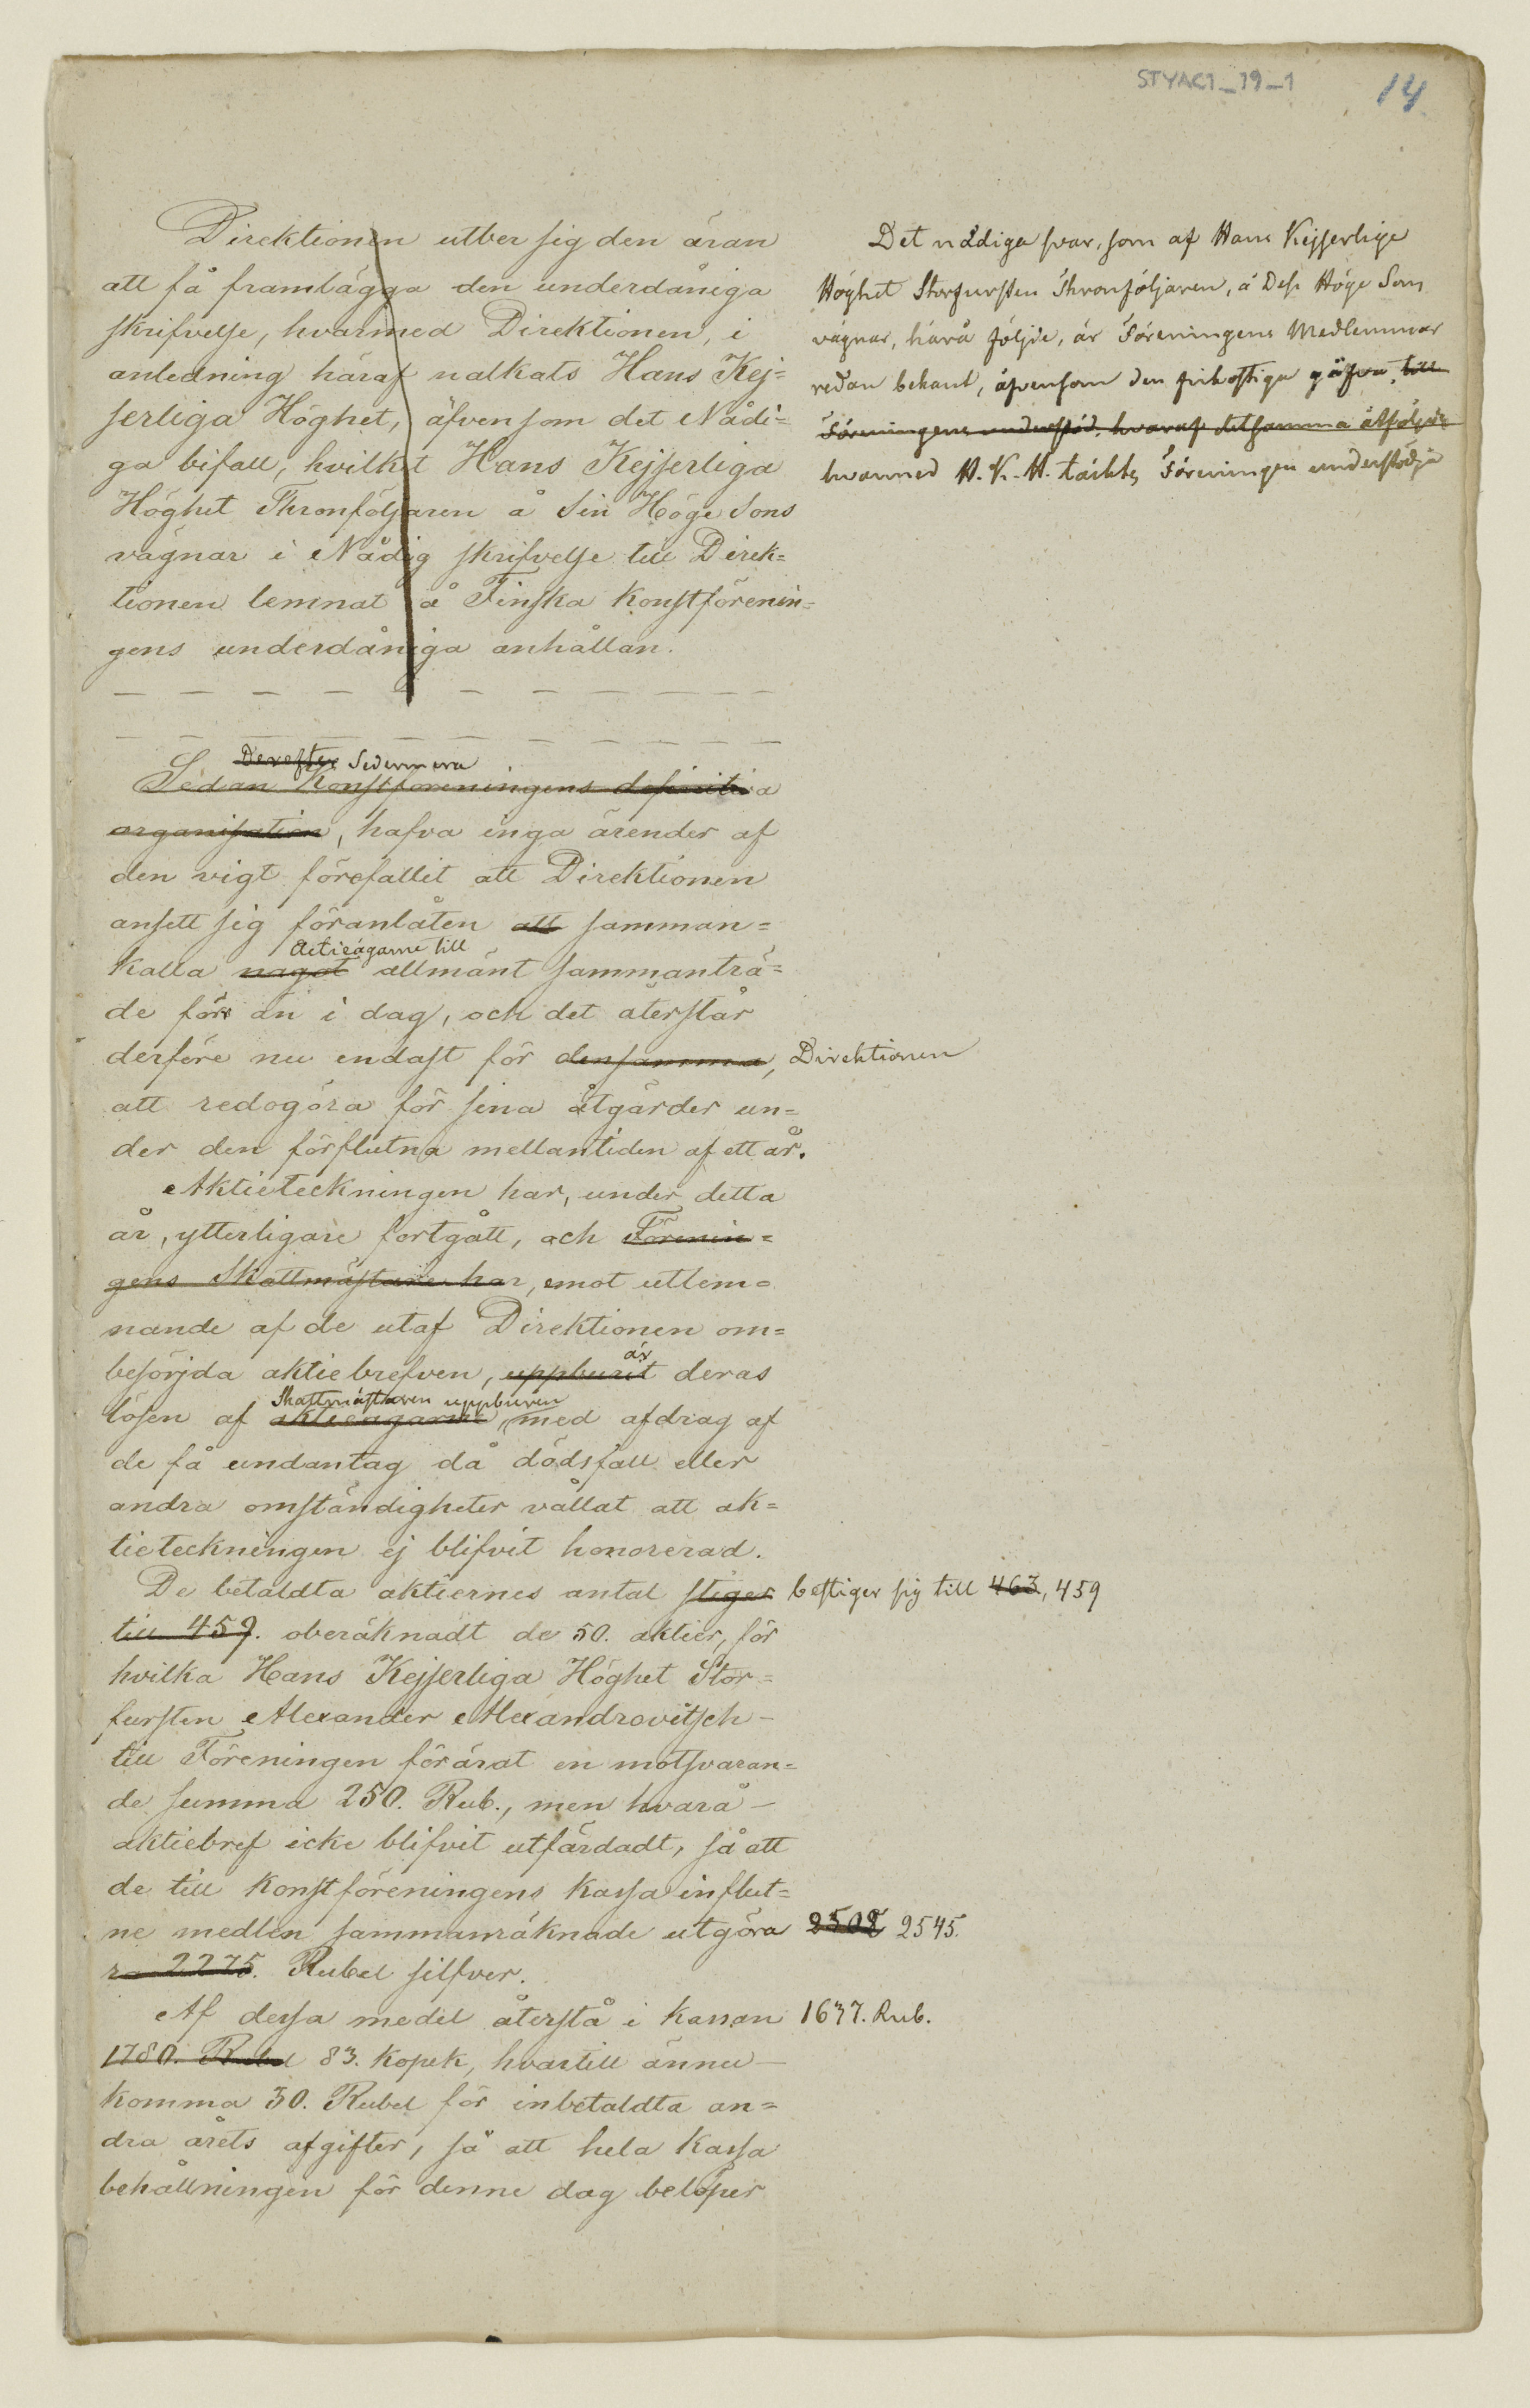 STYAC1_19_1
14
Direktionen utber sig den äran
att få framlägga den underdåniga
skrifvelse, hvarmed Direktionen, i
anledning häraf nalkats Hans Kej=
serliga Höghet, äfvensom det Nådi=
ga bifall, hvilket Hans Kejserliga
Höghet Thronföljaren å Sin Höge Sons
vägnar i Nådig skrifvelse till Direk=
tionen lemnat å Finska Konstförenin=
gens underdåniga anhållan.
Det nådiga svar, som af Hans Kejserlige
Höghet Storfursten Thronföljaren, å Dess Höge Sons
vägnar, härå följde, är Föreningens Medlemmar
redan bekant, äfvensom den frikostiga gåfva, till
Föreningens understöd, hvaraf detsamma åtföljdes
hvarmed H. K. H. täckts Föreningen understödja
Derefter Sedermera
Sedan Konstföreningens definitiva
organisation, hafva inga ärender af
den vigt förefallit att Direktionen
ansett sig föranlåten att samman=
Actieägarne till
kalla något allmänt sammanträ=
de förr än i dag, och det återstår
derföre nu endast för densamma, Direktionen
att redogöra för sina åtgärder un=
der den förflutna mellantiden af ett år.
Aktieteckningen har, under detta
år, ytterligare fortgått, och Förenin=
gens Skattmästare har, emot utlem=
nande af de utaf Direktionen om=
är
besörjda aktiebrefven, uppburit deras
Skattmästaren uppburen
lösen af aktieägarne, med afdrag af
de få undantag då dödsfall eller
andra omständigheter vållat att ak=
tieteckningen ej blifvit honorerad.
De betaldta aktiernes antal stiger bestiger sig till 463, 459
till 459. oberäknadt de 50. aktier, för
hvilka Hans Kejserliga Höghet Stor=
fursten Alexander Alexandrovitsch
till Föreningen förärat en motsvaran=
de summa 250. Rub., men hvarå
aktiebref icke blifvit utfärdadt, så att
de till Konstföreningens Kassa influt=
ne medlen sammanräknade utgöra 2508 2545.
ra 2275. Rubel silfver.
Af dessa medel återstå i Kassan 1637. Rub.
1780. Rubel 83. Kopek, hvartill ännu
komma 30. Rubel för inbetaldta an=
dra årets afgifter, så att hela Kassa
behållningen för denne dag belöper